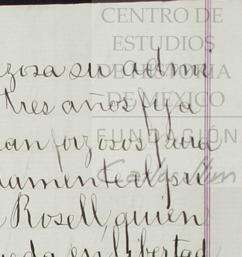 CENTRO DE
ESTUDIOS
DE HISTORIA
DE MEXICO
FUNDACIÓN
zosa su admi
tres años fija
an forzosos para
amente el pri
Rosell, quien
queda en libertad